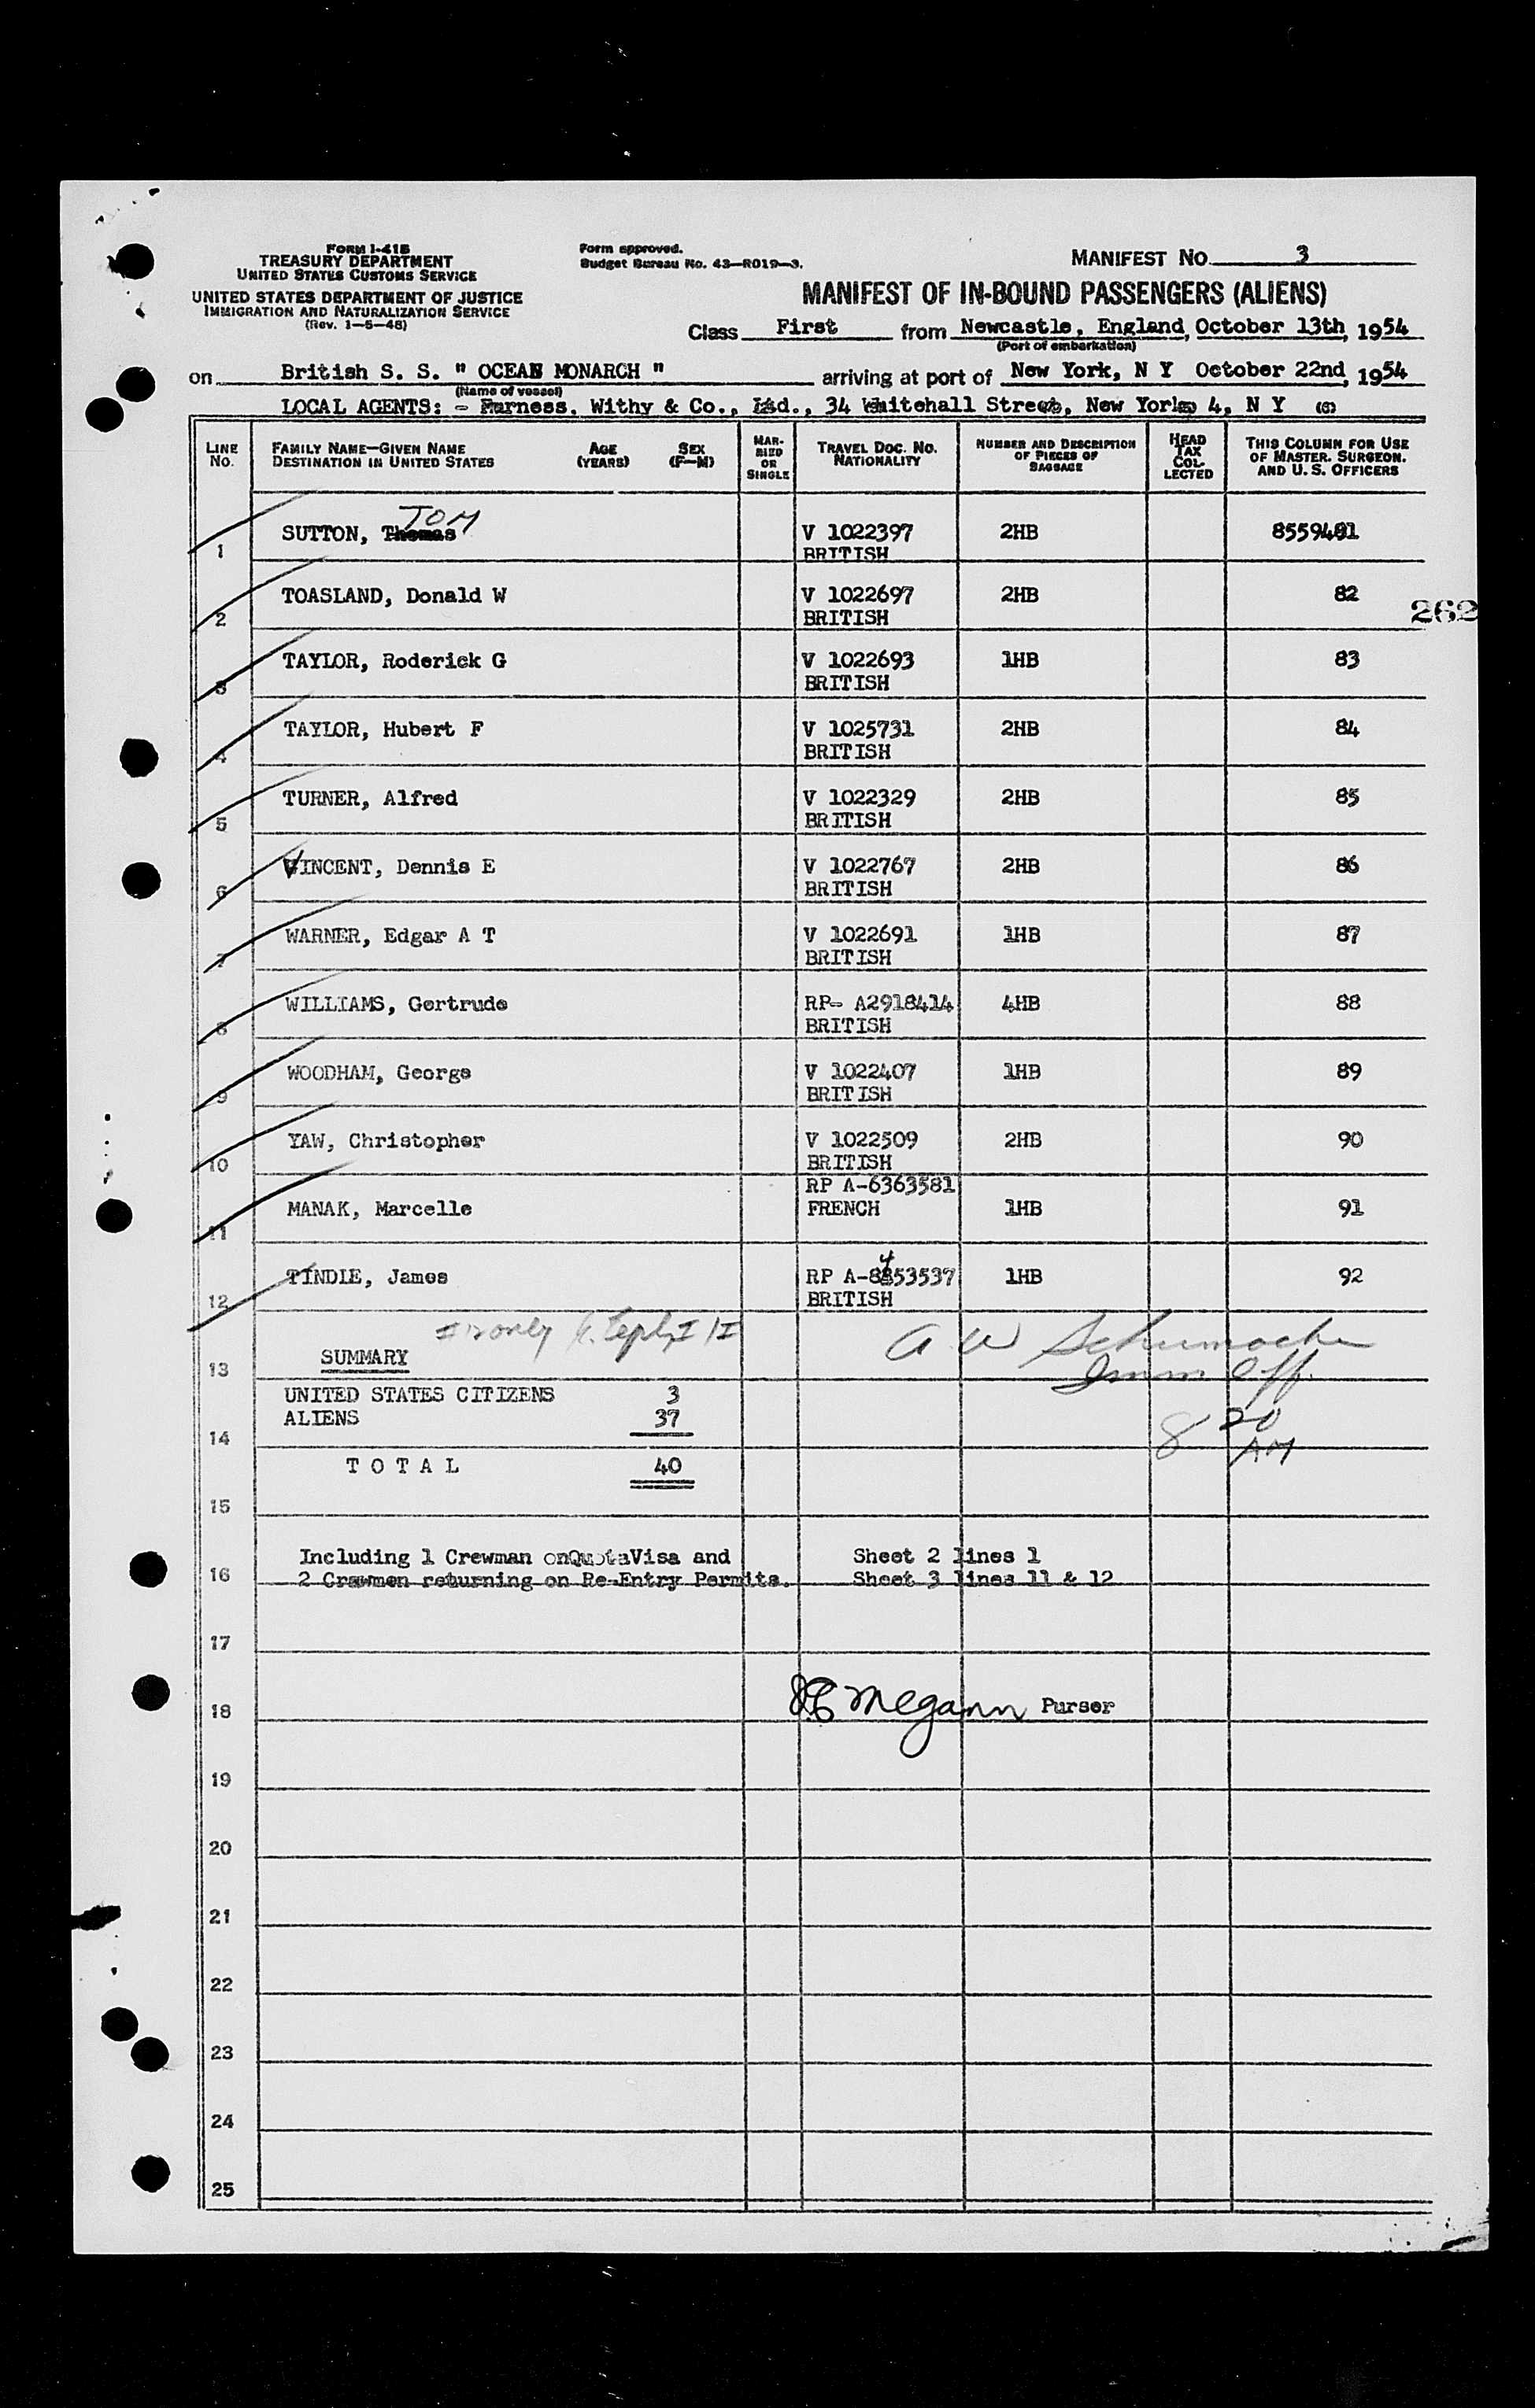 FORM I-41B
TREASURY DEPARTMENT
UNITED STATES CUSTOMS SERVICE
UNITED STATES DEPARTMENT OF JUSTICE
IMMIGRATION AND NATURALIZATION SERVICE
(Rev. 1-5-48)
Form approved.
Budget Bureau No. 43-R019-3.
MANIFEST NO. 3
MANIFEST OF IN-BOUND PASSENGERS (ALIENS)
Class First from Newcastle, England, October 13th, 1954
(Port of embarkation)
on British S. S. " OCEAN MONARCH " arriving at port of New York, N Y October 22nd, 1954
(Name of vessel)
LOCAL AGENTS: - Furness, Withy & Co., Ltd., 34 Whitehall Street, New York 4, N Y
LINE No. FAMILY NAME—GIVEN NAME DESTINATION IN UNITED STATES AGE (YEARS) SEX (F—M) MARRIED OR SINGLE TRAVEL DOC. NO. NATIONALITY NUMBER AND DESCRIPTION OF PIECES OF BAGGAGE HEAD TAX COLLECTED THIS COLUMN FOR USE OF MASTER, SURGEON, AND U. S. OFFICERS
TOM
1 SUTTON, Thomas V 1022397 2HB 8559481
BRITISH
2 TOASLAND, Donald W V 1022697 2HB 82
BRITISH
262
3 TAYLOR, Roderick G V 1022693 1HB 83
BRITISH
4 TAYLOR, Hubert F V 1025731 2HB 84
BRITISH
5 TURNER, Alfred V 1022329 2HB 85
BRITISH
6 VINCENT, Dennis E V 1022767 2HB 86
BRITISH
7 WARNER, Edgar A T V 1022691 1HB 87
BRITISH
8 WILLIAMS, Gertrude RP- A2918414 4HB 88
BRITISH
9 WOODHAM, George V 1022407 1HB 89
BRITISH
10 YAW, Christopher V 1022509 2HB 90
BRITISH
RP A-6363581
11 MANAK, Marcelle FRENCH 1HB 91
4
12 TINDLE, James RP A-8453537 1HB 92
BRITISH
only
A W Schumacher
Imm Off.
13 SUMMARY
UNITED STATES CITIZENS 3
ALIENS 37
8 20 AM
14
T O T A L 40
15
Including 1 Crewman onQuotaVisa and Sheet 2 lines 1
16 2 Crewmen returning on Re-Entry Permits. Sheet 3 lines 11 & 12
17
18 Megann Purser
19
20
21
22
23
24
25